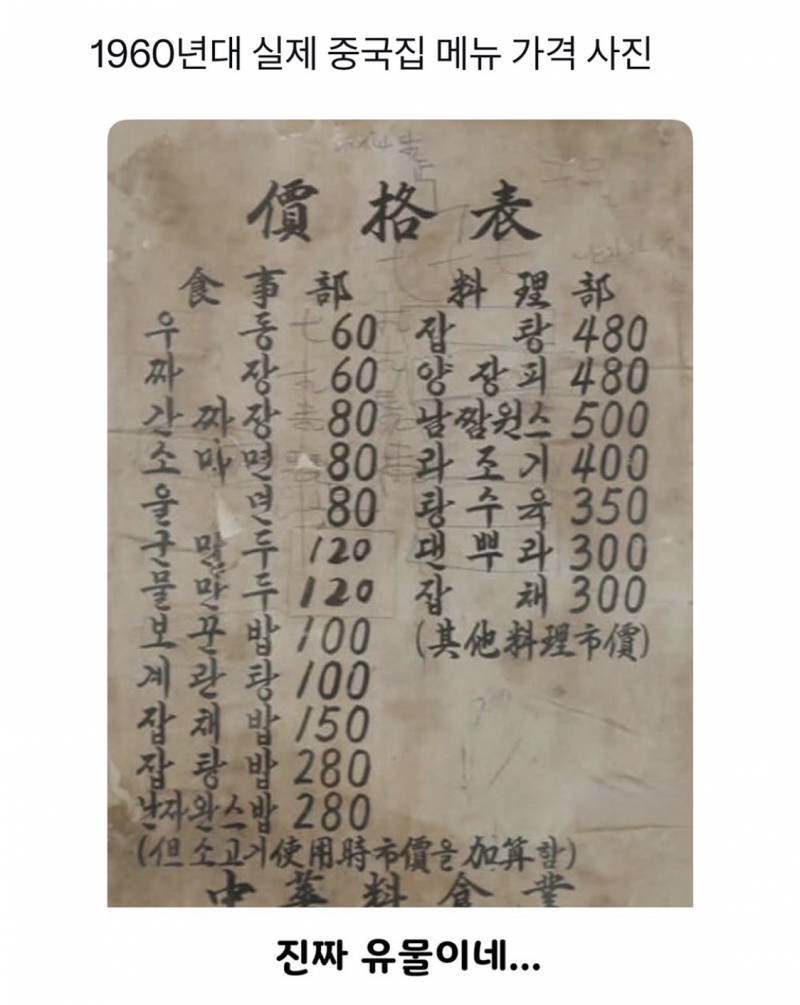 1960년대 실제 중국집 메뉴 가격 사진
價格表
食事部
우동 60
짜장 60
간짜장 80
소마면 80
울면 80
군만두 120
물만두 120
보꾼밥 100
계란탕 100
잡채밥 150
잡탕밥 280
난자완스밥 280
(但소고기使用時市價을加算함)
料理部
잡탕 480
양장피 480
남짬원스 500
라조기 400
탕수육 350
댄뿌라 300
잡채 300
(其他料理市價)
中華料食業
진짜 유물이네...